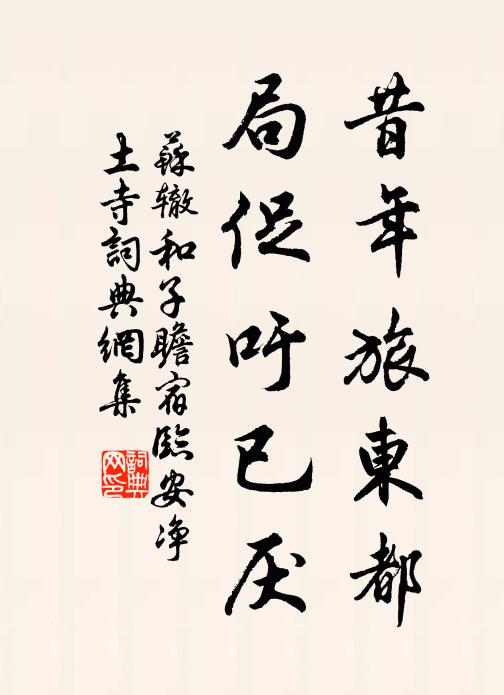 昔年旅東都
局促吁已厌
蘇辙和子瞻宿臨安净
土寺詞典網集
詞典网印